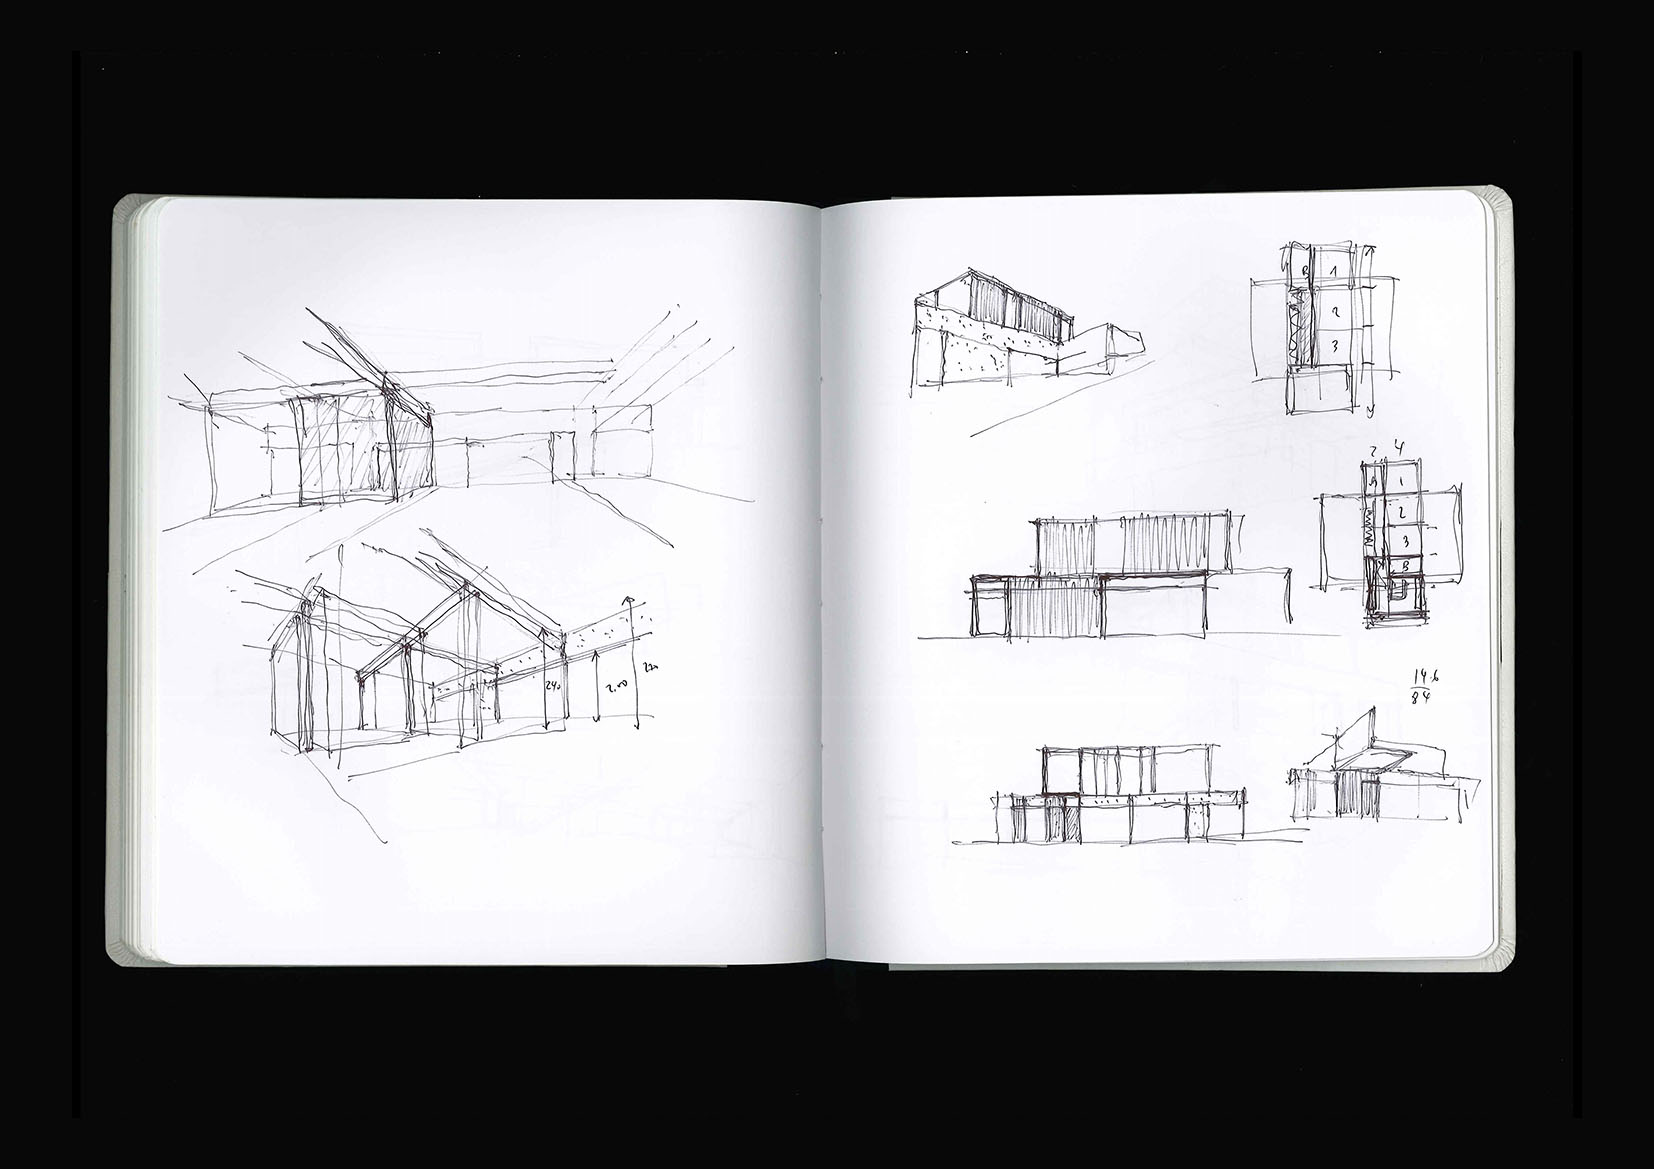 240
2,00
220
B 1
2
3
2 4
B 1
2
3
B
14·6
84